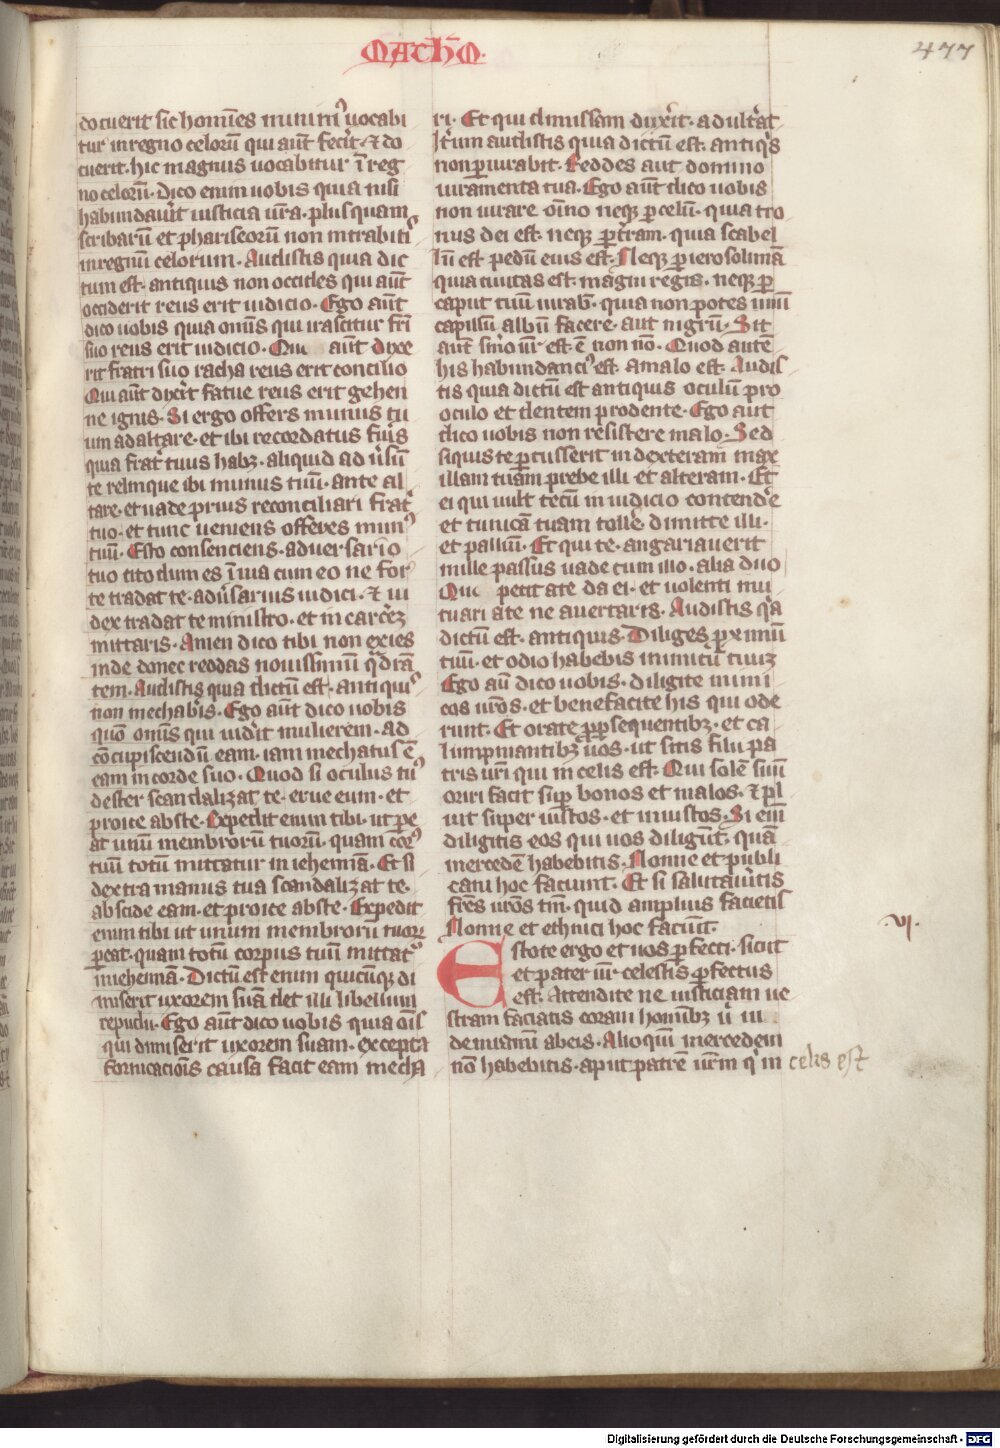 MATH'M
477
docuerit sic homīes minimꝰ uocabi
tur in regno celoꝝ qui aut̄ fec̓it ⁊ do
cuerit. hic magnus uocabitur ī reg
no celoꝝ. Dico enim uobis quia nisi
habundau̓it iusticia ur̄a. plus quam
scribarū et phariseorū non intrabitꝭ
in regnū celorum. Audistis quia dic
tum est. antiquis non occides qui aut̄
occiderit reus erit iudicio. Ego aut̄
dico uobis quia omīs qui irascitur fr̄i
suo reus erit iudicio. Qui aut̄ dixe
rit fratri suo racha reus erit concilio
Qui aut̄ dixer̓it fatue reus erit gehen
ne ignis. Si ergo offers munus tu
um ad altare. et ibi recordatus fu̓is
quia frat̓ tuus habꝫ. aliquid ad u̓sū
te relinque ibi munus tuū. ante al
tare. et uade prius reconciliari frat̓
tuo. et tunc ueniens offeres munꝰ
tuū. Esto consenciens. aduersario
tuo cito dum es ī uia cum eo ne for
te tradat te. adu̓sarius iudici. ⁊ iu
dex tradat te ministro. et in carc̓eꝫ
mittaris. Amen dico tibi non exies
inde donec reddas nouissimū q̓drā
tem. Audistis quia dictū est. antiquiꝰ
non mechab̓is. Ego aut̄ dico uobis
quō omīs qui uid̓it mulierem. ad
cōcupiscendū eam. iam mechatus ē
eam in corde suo. Quod si oculus tuꝰ
dexter scandalizat te. erue eum. et
proice abste. Expedit enim tibi. ut pe
at unū membrorū tuorū. quam corꝰ
tuū totū mittatur in iehennā. Et si
dextra manus tua scandalizat te.
abscide eam. et proice abste. Expedit
enim tibi ut unum membrorū tuoꝝ
ꝑeat. quam totū corpus tuū mittatᷣ
in iehennā. Dictū est enim quicūqꝫ di
miserit uxorem suā det illi libellum
repudii. Ego aut̄ dico uobis quia oīs
qui dimiserit uxorem suam. excepta
fornicacioīs causa facit eam mecha
ri. Et qui dimissam dux̓it. adult̓at
It̓um audistis quia dictū est. antiq̓s
non ꝑiurabit. Reddes aut domino
iuramenta tua. Ego aut̄ dico uobis
non iurare oīno neqꝫ ꝑ celū. quia tro
nus dei est. neqꝫ ꝑ t̓ram. quia scabel
lū est pedū eius est. Neqꝫ ꝑ ierosolimā
quia ciuitas est. magni regis. neqꝫ ꝑ
caput tuū iurab̓. quia non potes unū
capillū albū facere. aut nigrū. Sit
aut̄ sm̄o ur̄ est. ē non nō. Quod autē
his habundanciꝰ est. a malo est. Audis
tis quia dictū est antiquis oculū pro
oculo et dentem prodente. Ego aut̄
dico uobis non resistere malo. Sed
siquis te ꝑcusserit in dexteram max
illam tuam prebe illi et alteram. Et
ei qui uult tecū in iudicio contend̓e
et tunicā tuam tolle dimitte illi.
et palliū. Et qui te. angariauerit
mille passus uade cum illo. alia duo
Qui petit ate da ei. et uolenti mu
tuari ate ne auertaris. Audistis q̓a
dictū est. antiquis. Diliges ꝓximū
tuū. et odio habebis inimicū tuuꝫ
Ego aū dico uobis. diligite inimi
cos ur̄os. et benefacite his qui ode
runt. Et orate ꝓ ꝑsequentibꝫ. et ca
lumpniantibꝫ uos. ut sitis filii pa
tris ur̄i qui in celis est. Qui solē suū
oriri facit suꝑ bonos et malos. ⁊ pl
uit super iustos. et iniustos. Si eiī
diligitis eos qui uos diligūt. quā
mercedē habebitis. Nonne et publi
cani hoc faciunt. Et si salutau̓itis
fr̄es ur̄os tm̄. quid amplius facietis
Nonne et ethnici hoc faciūt.
Estote ergo et uos ꝑfecti. sicut
et pater ur̄ celestis ꝑfectus
est. Attendite ne iusticiam ue
stram faciatis coram hominibꝫ
deminī abeis. Alioquī mercedem
nō habebitis. aput patrē ur̄m q̓ in celis est
.VI.
Digitalisierung gefördert durch die Deutsche Forschungsgemeinschaft - DFG